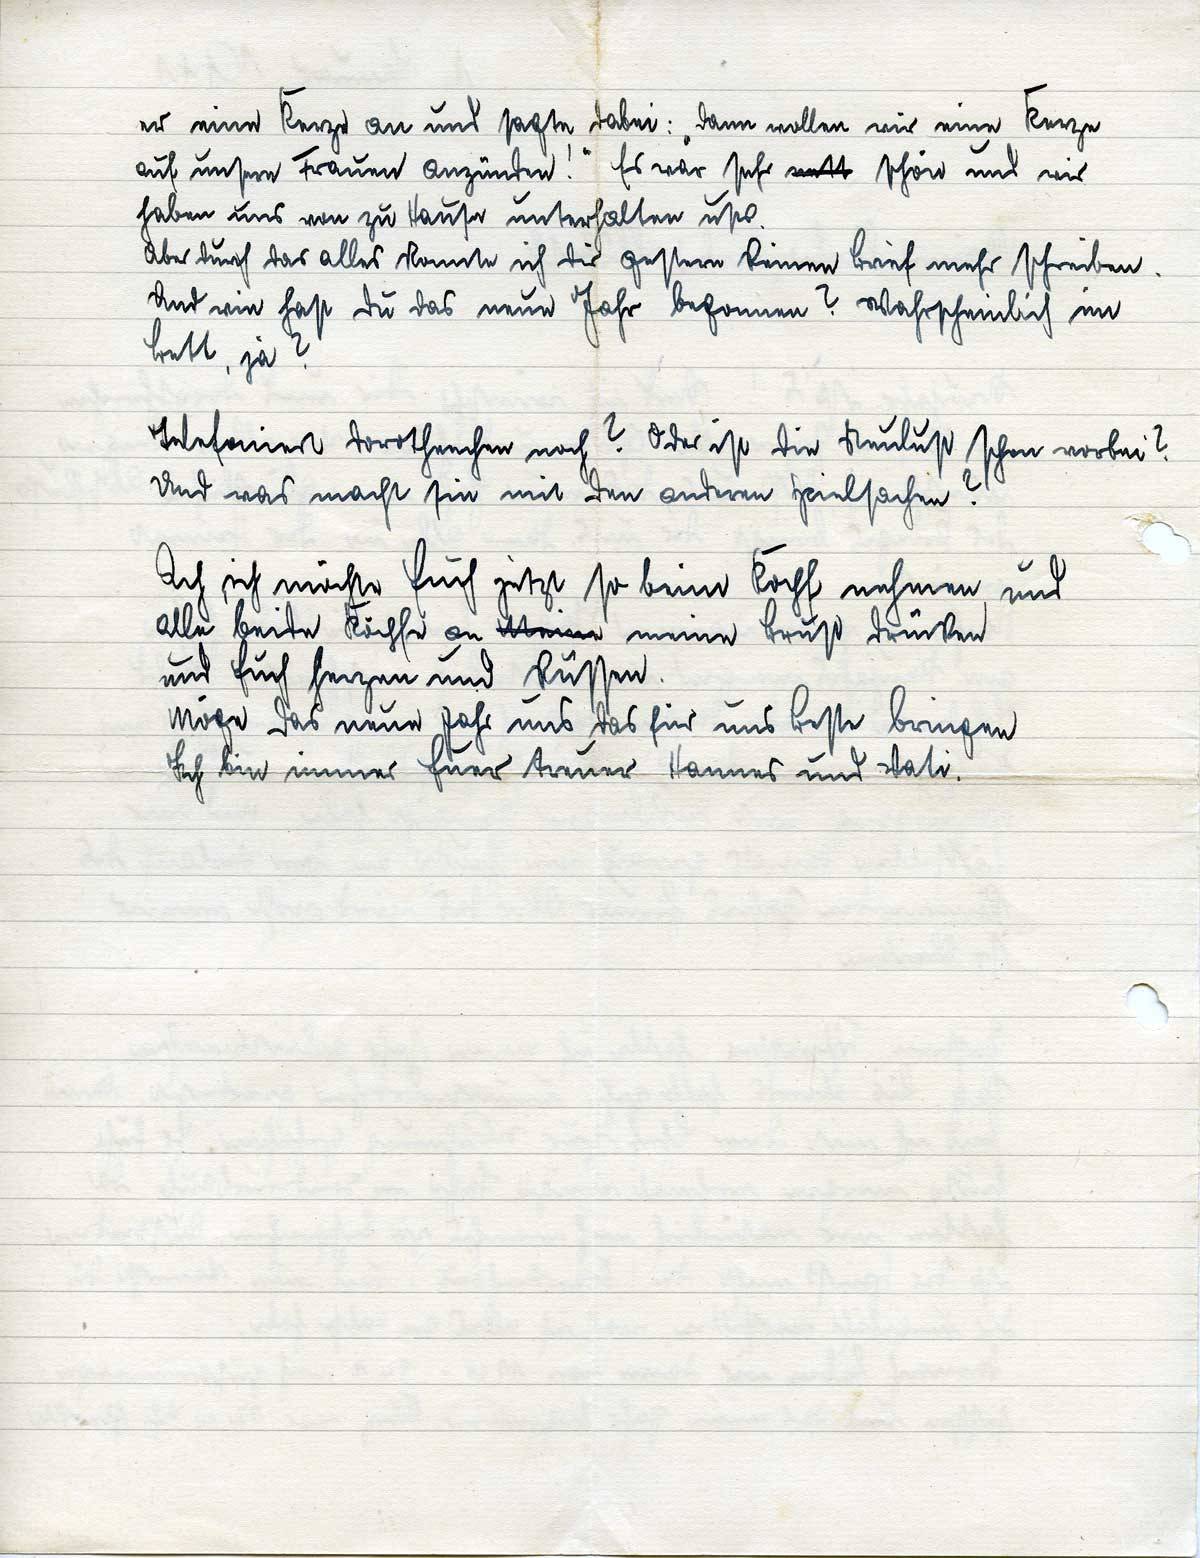 er eine Kerze an und sagte dabei: „Dann wollen wir eine Kerze
auf unsere Frauen anzünden!“ Es war sehr nett schön und wir
haben uns von zu Hause unterhalten usw.
Aber durch das alles konnte ich Dir gestern keinen Brief mehr schreiben.
Und wie hast Du das neue Jahr begonnen? Wahrscheinlich im
Bett, ja?
Telefoniert Dorotheechen noch? Oder ist die Neulust schon vorbei?
Und was macht sie mit den anderen Spielsachen?
Ach ich möchte Euch jetzt so beim Kopf nehmen und
alle beide Köpfe an Meine meine Brust drücken
und Euch herzen und küssen.
Möge das neue Jahr uns das für uns Beste bringen
Ich bin immer Euer treuer Hannes und Vati.